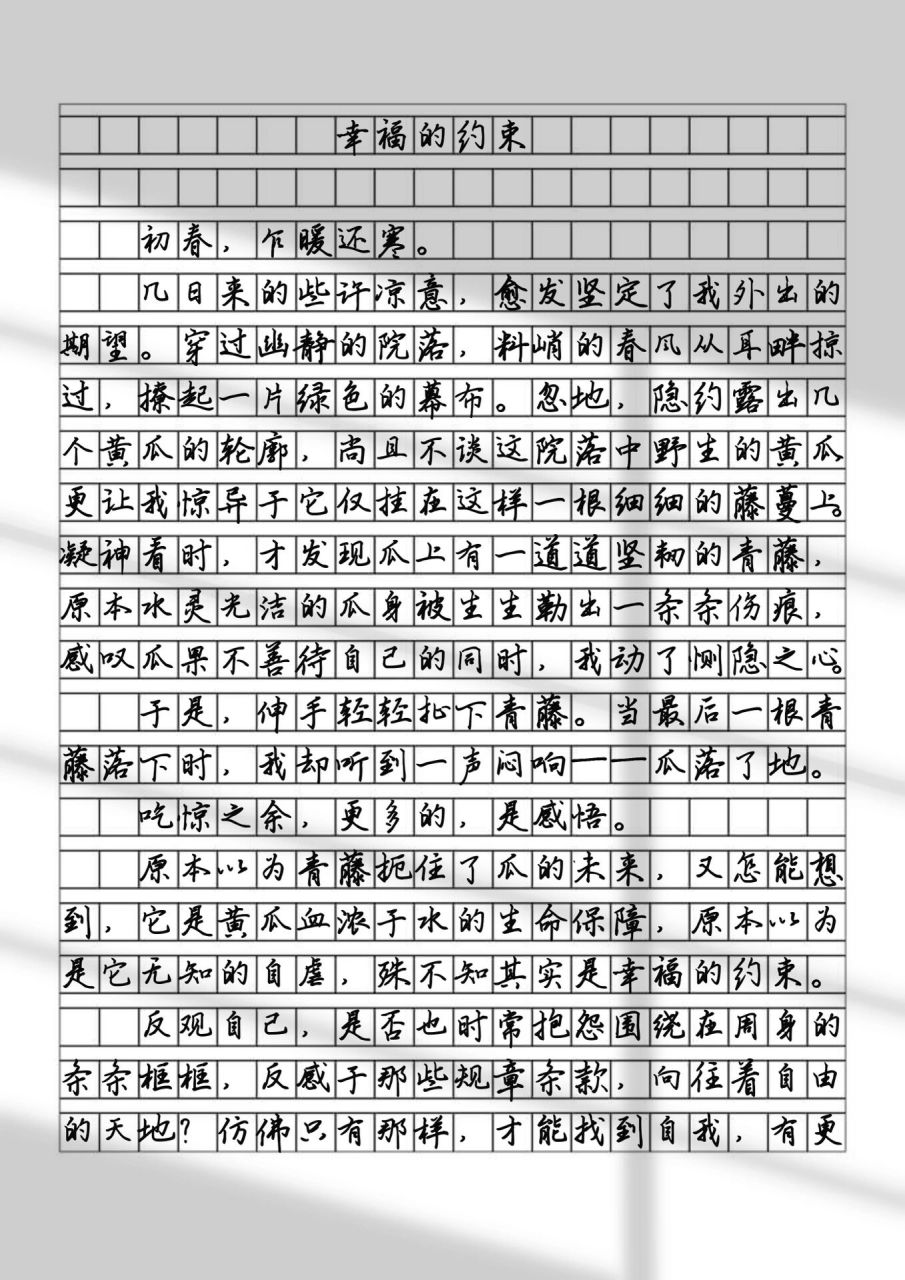 幸福的约束
初春，乍暖还寒。
几日来的些许凉意，愈发坚定了我外出的
期望。穿过幽静的院落，料峭的春风从耳畔掠
过，撩起一片绿色的幕布。忽地，隐约露出几
个黄瓜的轮廓，尚且不谈这院落中野生的黄瓜
更让我惊异于它仅挂在这样一根细细的藤蔓上。
凝神看时，才发现瓜上有一道道坚韧的青藤，
原本水灵光洁的瓜身被生生勒出一条条伤痕，
感叹瓜果不善待自己的同时，我动了恻隐之心。
于是，伸手轻轻扯下青藤。当最后一根青
藤落下时，我却听到一声闷响——瓜落了地。
吃惊之余，更多的，是感悟。
原本以为青藤扼住了瓜的未来，又怎能想
到，它是黄瓜血浓于水的生命保障，原本以为
是它无知的自虐，殊不知其实是幸福的约束。
反观自己，是否也时常抱怨围绕在周身的
条条框框，反感于那些规章条款，向往着自由
的天地？仿佛只有那样，才能找到自我，有更